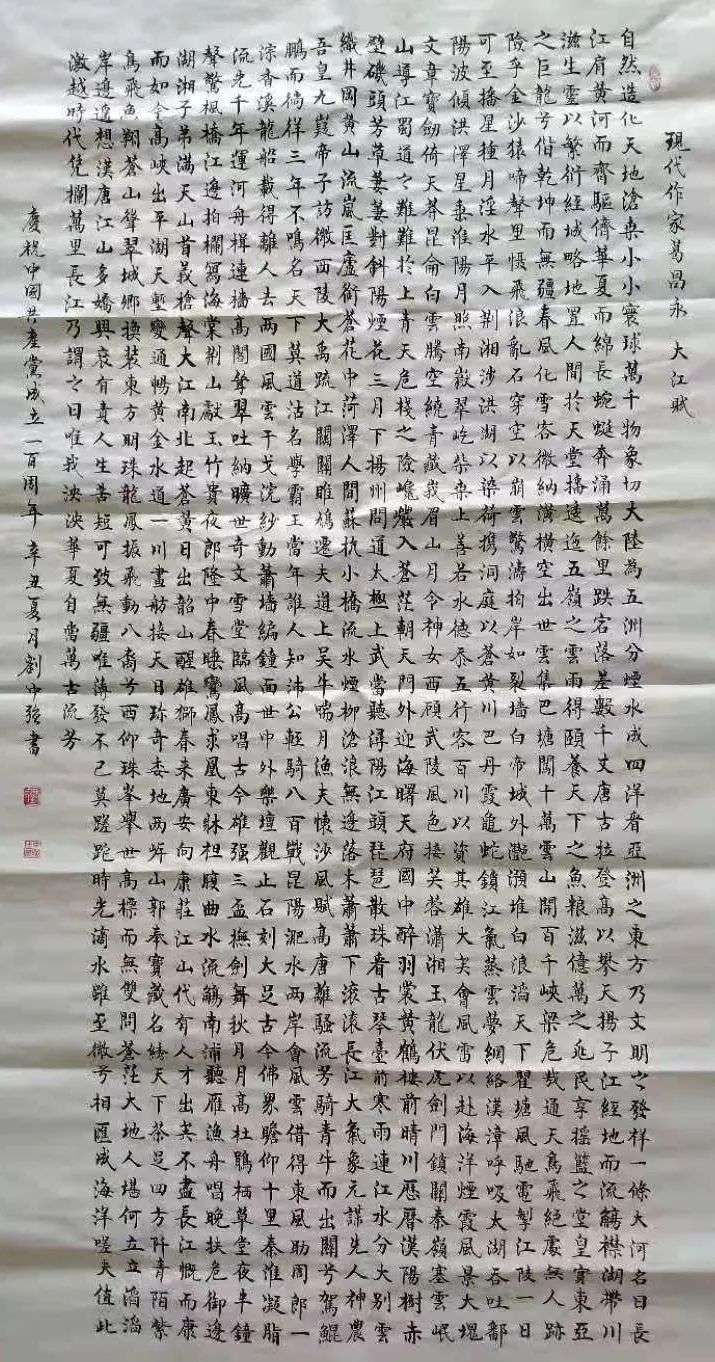 現代作家葛昌永 大江賦
自然造化天地滄桑小小寰球萬千物象切大陸為五洲分煙水成四洋看亞洲之東方乃文明之發祥一條大河名曰長
江肩黄河而齊驅儕華夏而綿長蜿蜒奔涌萬餘里跌宕落差數千丈唐古拉登高以攀天揚子江經地而流觴襟湖帶川
滋生靈以繁衍經城略地置人間於天堂播遠迤五嶺之雲雨得頤養天下之魚粮滋億萬之兆民享搖籃之堂皇實東亞
之巨龍兮偕乾坤而無疆春風化雪容微納潢橫空出世雲集巴塘闖十萬雲山開百千峽梁危哉通天鳥飛絕處無人跡
險乎金沙猿啼聲里慑飛浪亂石穿空以崩雲驚濤拍岸如裂墙白帝城外灧澦堆白浪滔天下瞿塘風馳電掣江陵一日
可至播星種月淫水平入荆湘涉洪湖以染荷携洞庭以蒼黄川巴丹霞龜蛇鎖江氣蒸雲夢網絡漢漳呼吸大湖吞吐鄱
陽波傾洪澤星垂淮陽月照南嶽翠屹朵朵上善若水德忝五行容百川以資其雄大矣會風雷以赴海洋煙霞風景大塊
文章寳劍倚天莽昆侖白雲騰空繞青藏峨眉山月令神女西顧武陵風色接芙蓉瀟湘玉龍伏虎劍門鎖關秦嶺塞雲岷
山導江蜀道之難難於上青天危棧之險巉巖入蒼茫朝天門外迎海曙天府國中醉羽裳黄鶴樓前晴川歷歷漢陽樹赤
壁磯頭芳草萋萋對斜陽煙花三月下揚州問道太極上武當聽潯陽江頭琵琶散珠看古琴臺前寒雨連江水分大别雲
織井岡黄山流嵐匡廬銜蒼花中菏澤人間蘇杭小橋流水煙柳滄浪無邊落木蕭蕭下滚滚長江大氣象元謀先人神農
吾皇九嶷帝子訪微西陵大禹疏江關關雎鳩遷夫道上吴牛喘月漁夫懷沙風賦高唐離騷流芳騎青牛而出關兮駕鯤
鵬而徜徉三年不鳴名天下莫道沽名學霸王當年誰人知沛公輕騎八百戰昆陽淝水兩岸會風雲借得東風助周郎一
淙香溪龍船載得離人去兩國風雲干戈浣紗動蕭墙編鐘面世中外樂壇觀止石刻大足古今佛界瞻仰十里秦淮凝脂
流光千年運河舟楫連檣高閣聳翠吐納曠世奇文雪堂臨風高唱古今雄强三盃撫劍舞秋月月高杜鵑栖草堂夜半鐘
聲驚楓橋江邊拍欄寫海棠荆山獻玉竹貴夜郎隆中春睡鸞鳳求凰東牀袒腹曲水流觴南浦聽雁漁舟唱晚扶危御邊
湖湘子弟滿天山首義槍聲大江南北起蒼黄日出韶山醒雄獅春来廣安向康莊江山代有人才出矣不盡長江慨而康
而如今高峽出平湖天塹變通暢黄金水道一川畫舫接天日珍奇委地兩岸山郭奉寳藏名綉天下茶足四方阡青陌紫
鳥飛魚翔蒼山聳翠城鄉換装東方明珠龍鳳振飛動八裔兮西仰珠峯舉世高標而無雙問蒼茫大地人堪何立立滔滔
岸邊遥想漢唐江山多嬌興衰有責人生苦短可致無疆唯薄發不已莫蹉跎時光滴水雖至微兮相匯成海洋嗟夫值此
激越時代凭欄萬里長江乃謂之曰唯我泱泱華夏自當萬古流芳
慶祝中國共産黨成立一百周年 辛丑夏月劉中強書